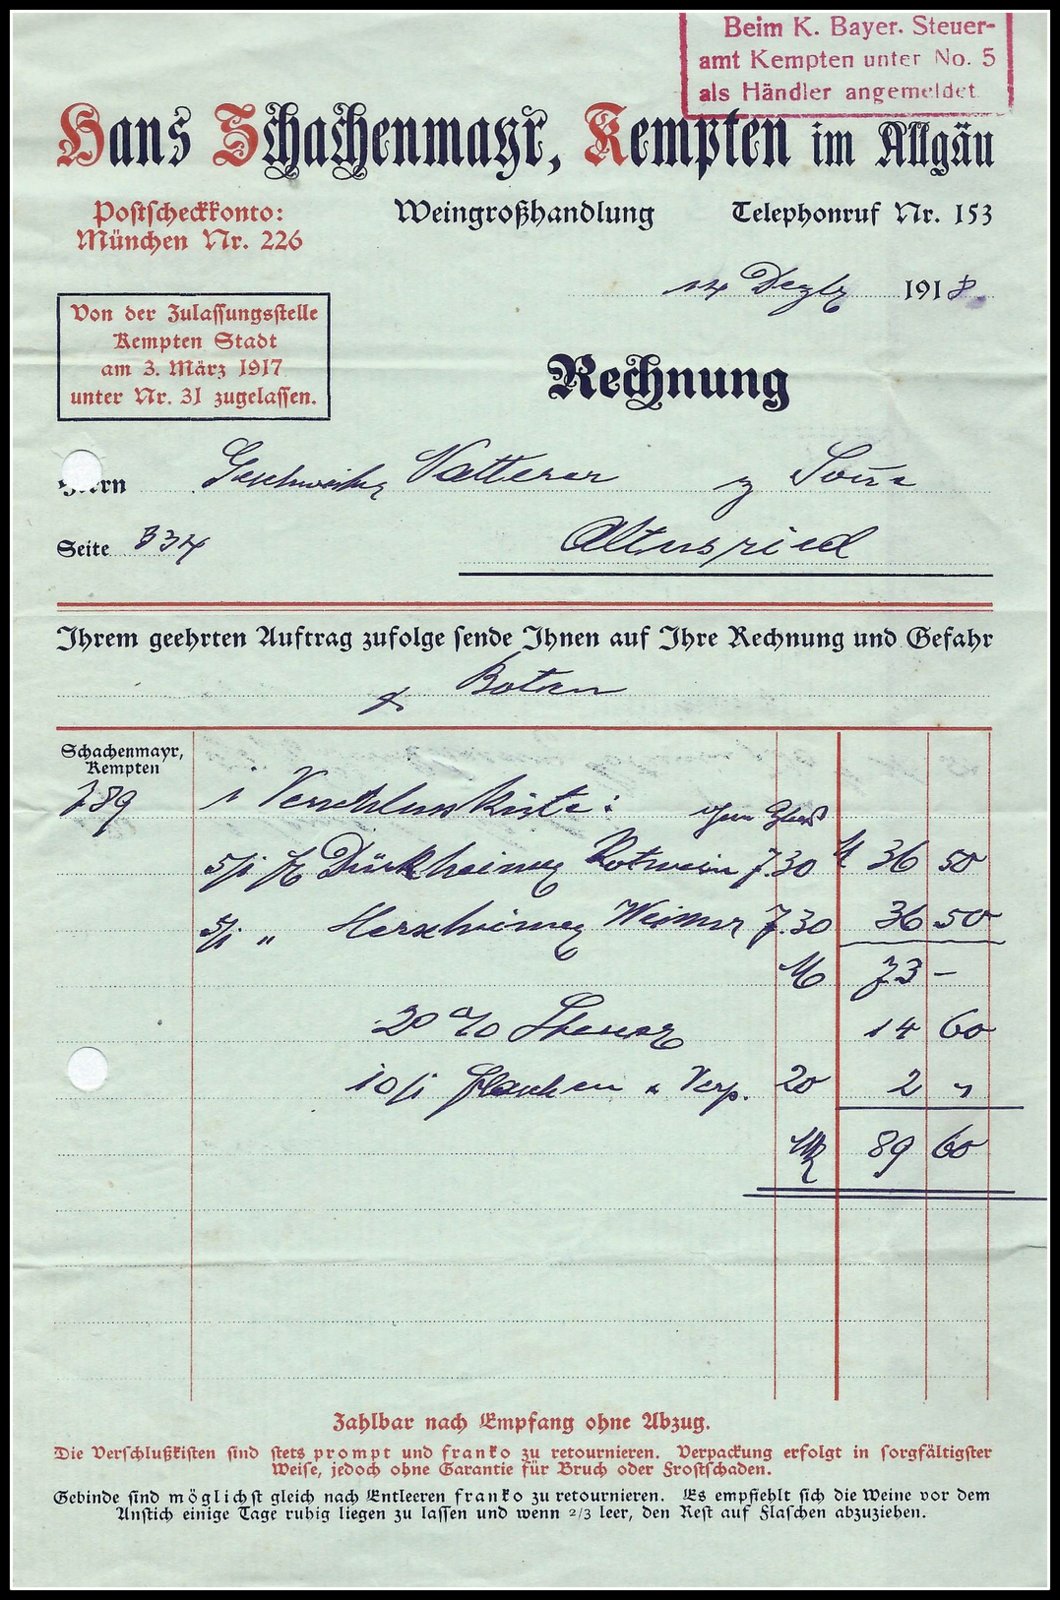 Beim K. Bayer. Steuer-
amt Kempten unter No. 5
als Händler angemeldet
Hans Schachenmayr, Kempten im Allgäu
Postscheckkonto:
München Nr. 226
Weingroßhandlung
Telephonruf Nr. 153
14 Dezbr 1918
Von der Zulassungsstelle
Kempten Stadt
am 3. März 1917
unter Nr. 31 zugelassen.
Rechnung
Herrn Geschwister Vatterer z Sonne
Seite 334 Altusried
Ihrem geehrten Auftrag zufolge sende Ihnen auf Ihre Rechnung und Gefahr
Boten
Schachenmayr,
Kempten
789 1 Verschlusskiste: ohne Glas
5/1 Dürkheimer Rotwein 7.30 M 36 50
5/1 " Herxheimer Weisser 7.30 36 50
M 73 –
20 % Steuer 14 60
10/1 Flaschen & Verp. 20 2 "
M 89 60
Zahlbar nach Empfang ohne Abzug.
Die Verschlußkisten sind stets prompt und franko zu retournieren. Verpackung erfolgt in sorgfältigster
Weise, jedoch ohne Garantie für Bruch oder Frostschaden.
Gebinde sind möglichst gleich nach Entleeren franko zu retournieren. Es empfiehlt sich die Weine vor dem
Anstich einige Tage ruhig liegen zu lassen und wenn 2/3 leer, den Rest auf Flaschen abzuziehen.